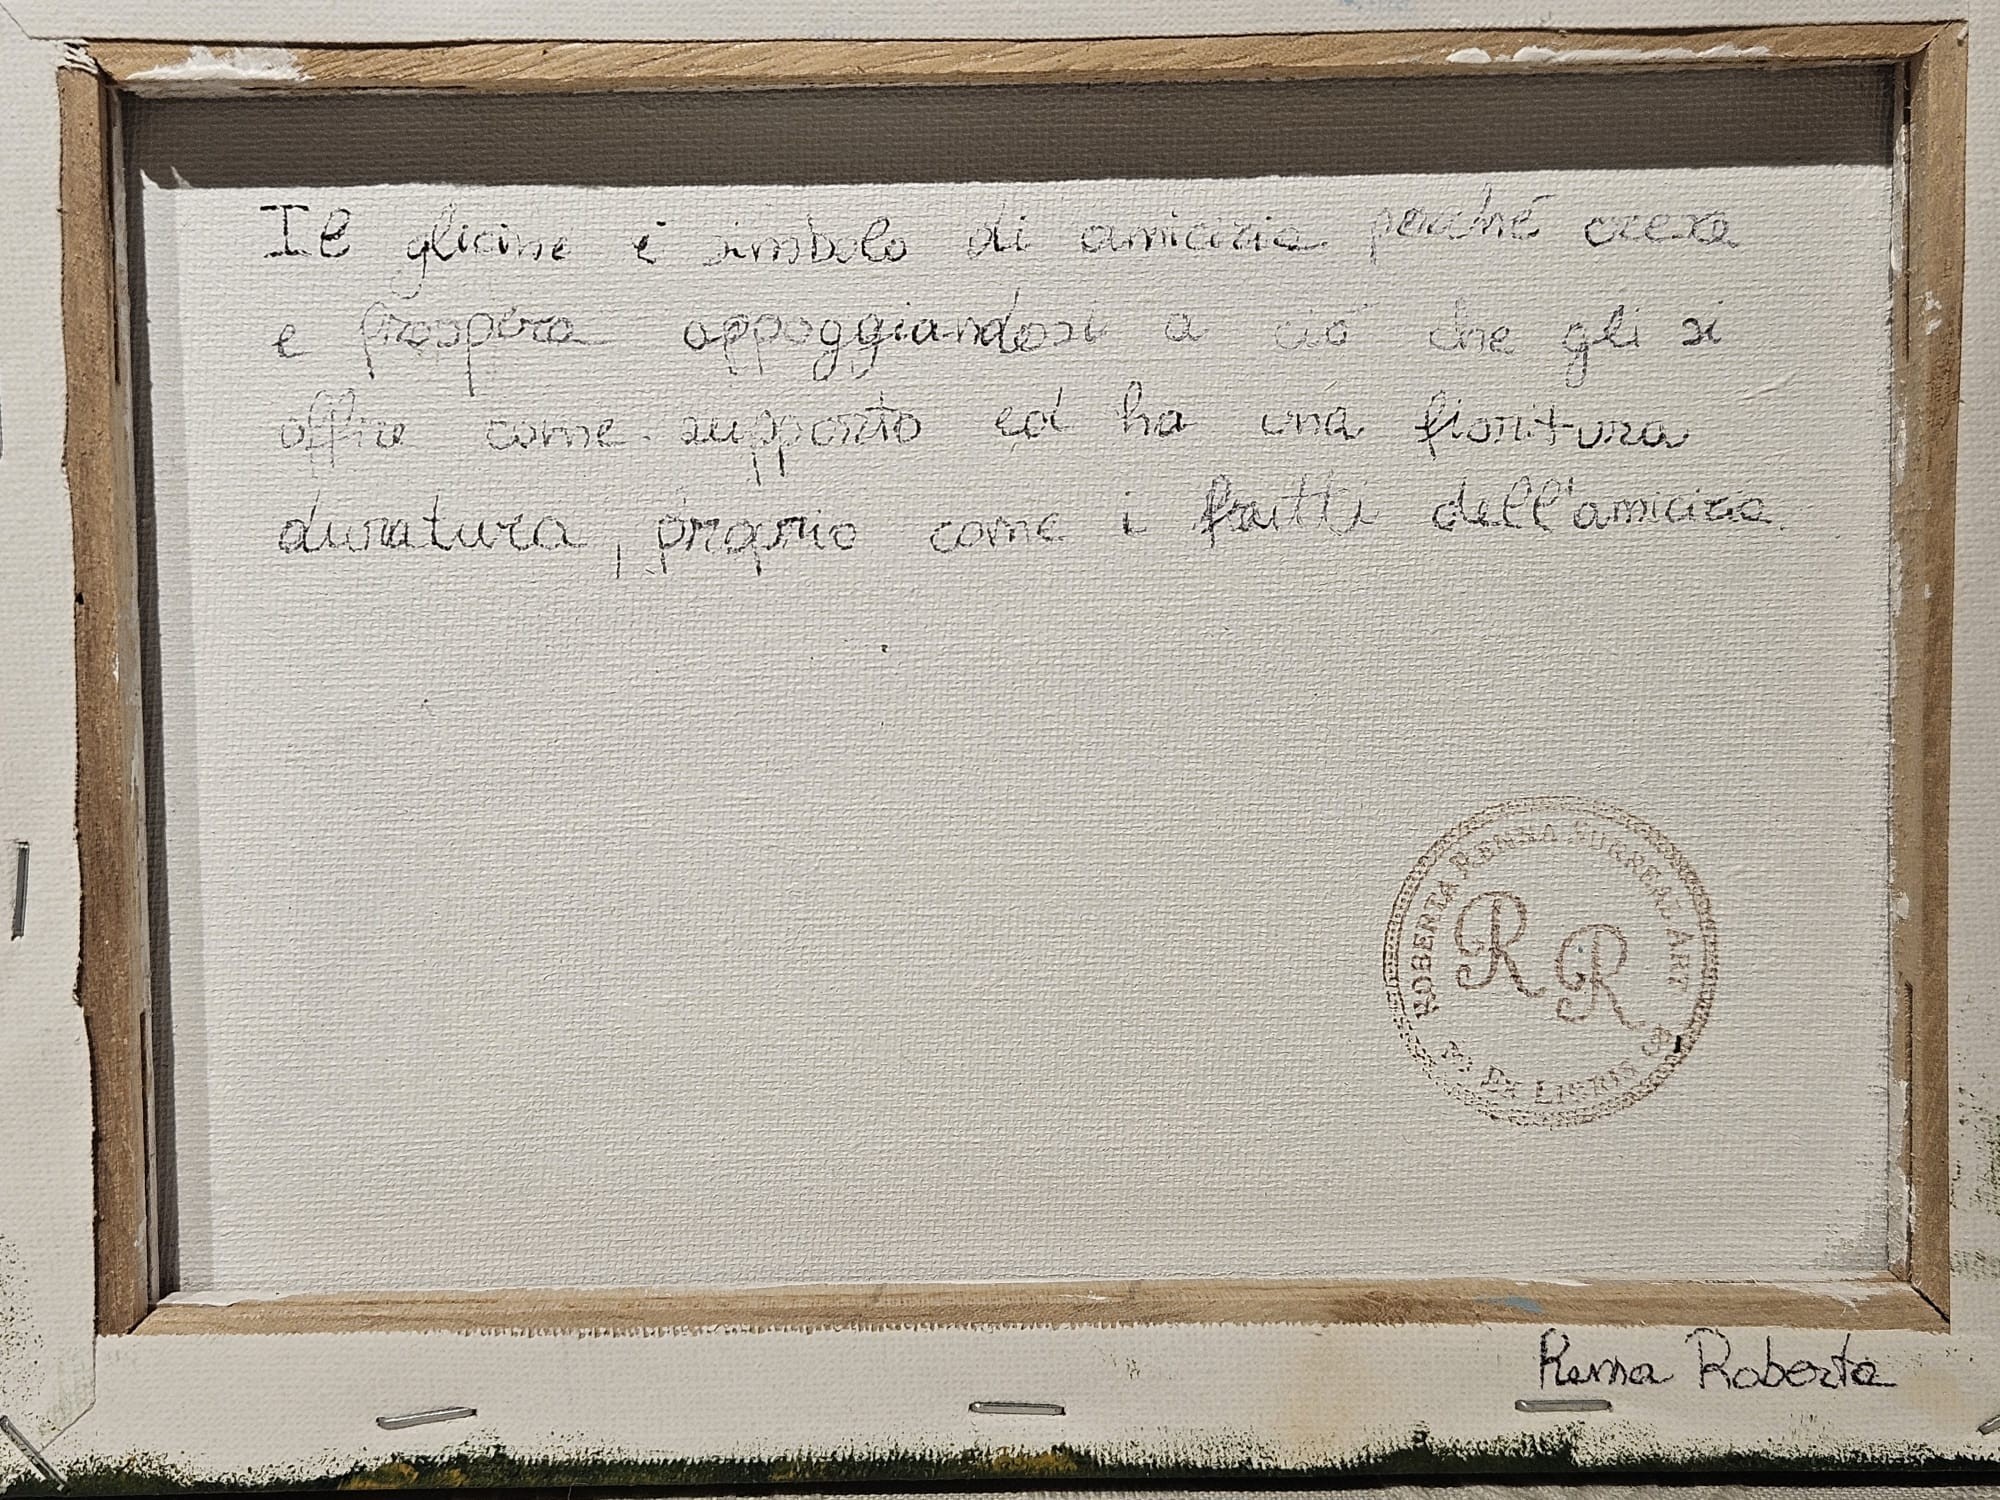 Il glicine è simbolo di amicizia perché cresce
e prospera appoggiandosi a ciò che gli si
offre come supporto ed ha una fioritura
duratura, proprio come i frutti dell'amicizia.
ROBERTA RENNA SURREAL ART
RR
EX LIBRIS
Renna Roberta